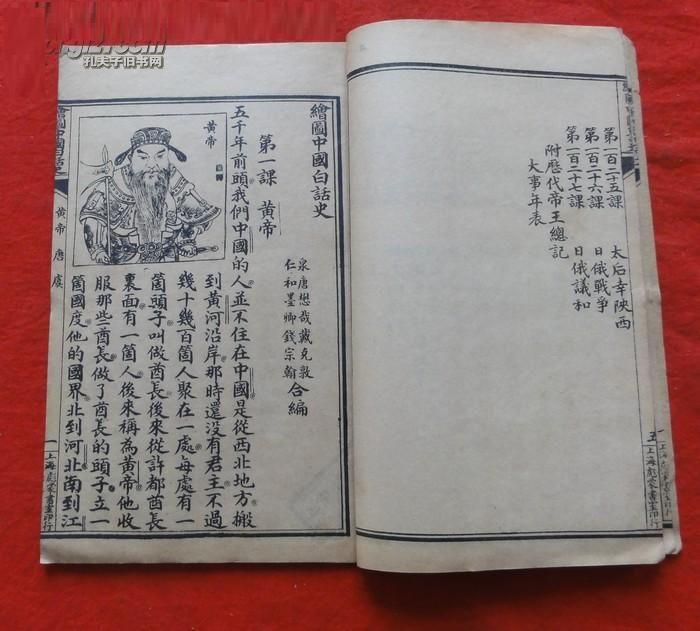 第一百二十五課 太后幸陝西
第一百二十六課 日俄戰爭
第一百二十七課 日俄議和
附歷代帝王總記
大事年表
五
上海彪蒙書室印行
繪圖中國白話史
泉唐懋哉戴克敦
仁和墨卿錢宗翰
合編
第一課 黃帝
五千年前頭我們中國的人並不住在中國是從西北地方搬
到黃河沿岸那時還沒有君主不過
幾十幾百箇人聚在一處每處有一
箇頭子叫做酋長後來從許都酋長
裏面有一箇人後來稱為黃帝他收
服那些酋長做了酋長的頭子立一
箇國度他的國界北到河北南到江
黃帝
繪圖中國白話史
黃帝 唐虞
一
上海彪蒙書室印行
孔夫子旧书网